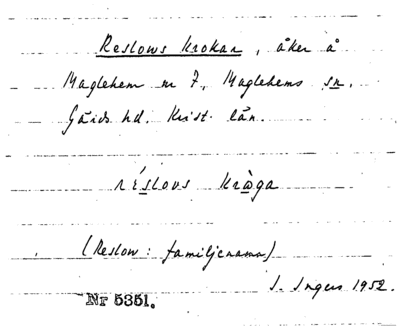 Reslows Krokar, åker å
Maglehem nr 7, Maglehems sn.
Gärds hd. Krist. län.
réslovs kròga
(Reslow: familjenamn)
I. Ingers 1952.
Nr 5351.